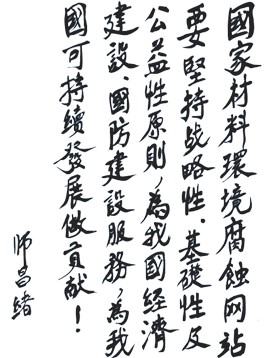 國家材料環境腐蝕网站
要堅持战略性、基礎性及
公益性原則，為我國經濟
建設、國防建設服務，為我
國可持續發展做貢献！
师昌绪